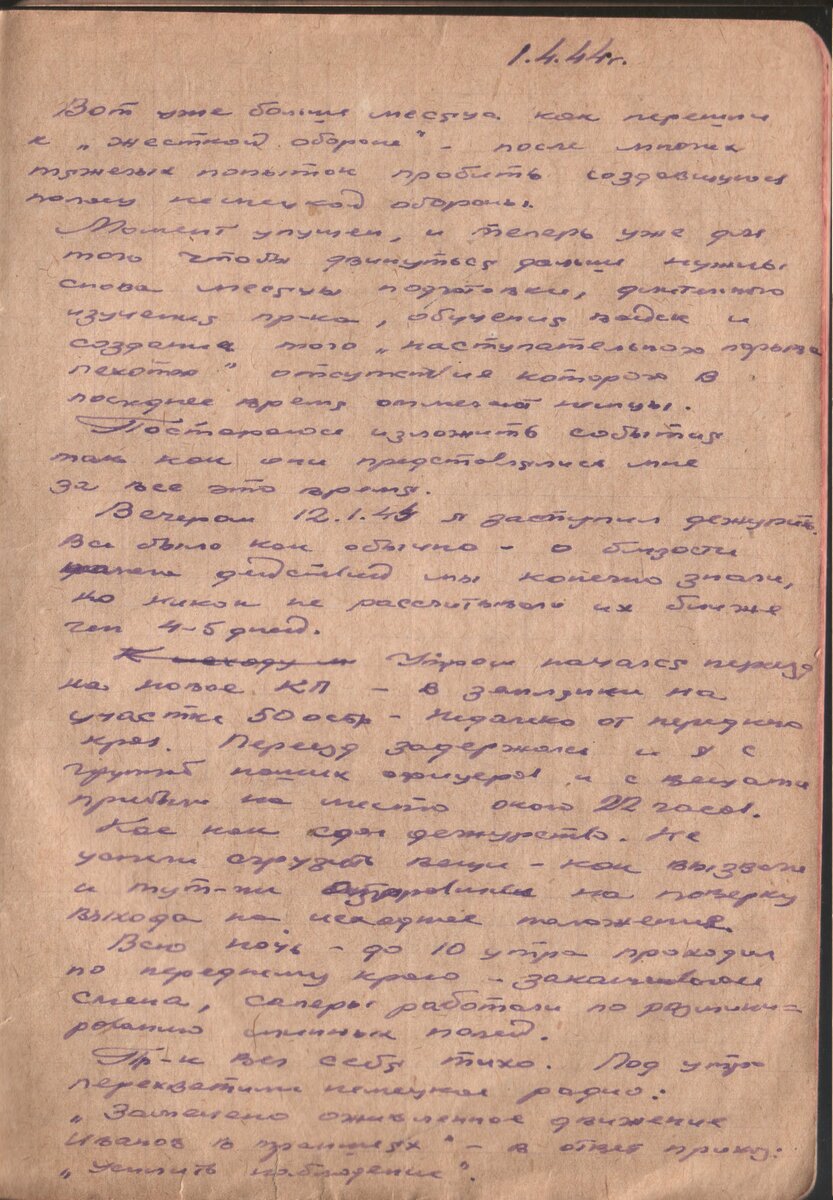 1.4.44г.
Вот уже больше месяца как перешли
к „жесткой обороне" - после многих
тяжелых попыток пробить создавшуюся
полосу немецкой обороны.
Момент упущен, и теперь уже для
того чтобы двинуться дальше нужны
снова месяцы подготовки, длительного
изучения пр-ка, обучения войск и
создания того „наступательного порыва
пехоты" отсутствие которого в
последнее время отмечают немцы.
Постараюсь изложить события
так как они представлялись мне
за все это время.
Вечером 12.1.44 я заступил дежурить.
Все было как обычно - о близости
действий мы конечно знали,
но никак не рассчитывали их ближе
чем 4-5 дней.
Утром начался переезд
на новое КП - в землянки на
участке 50 осбр - недалеко от переднего
края. Переезд задержался и я с
группой наших офицеров и с вещами
прибыли на место около 22 часов.
Кое как сдал дежурство. Не
успели сгрузить вещи - как вызвали
и тут-же отправились на поверку
выхода на исходное положение.
Всю ночь - до 10 утра проходил
по переднему краю - заканчивалась
смена, саперы работали по размини=
рованию минных полей.
Пр-к вел себя тихо. Под утро
перехватили немецкое радио:
„Замечено оживленное движение
Иванов в траншеях" - в ответ приказ:
„Усилить наблюдение".